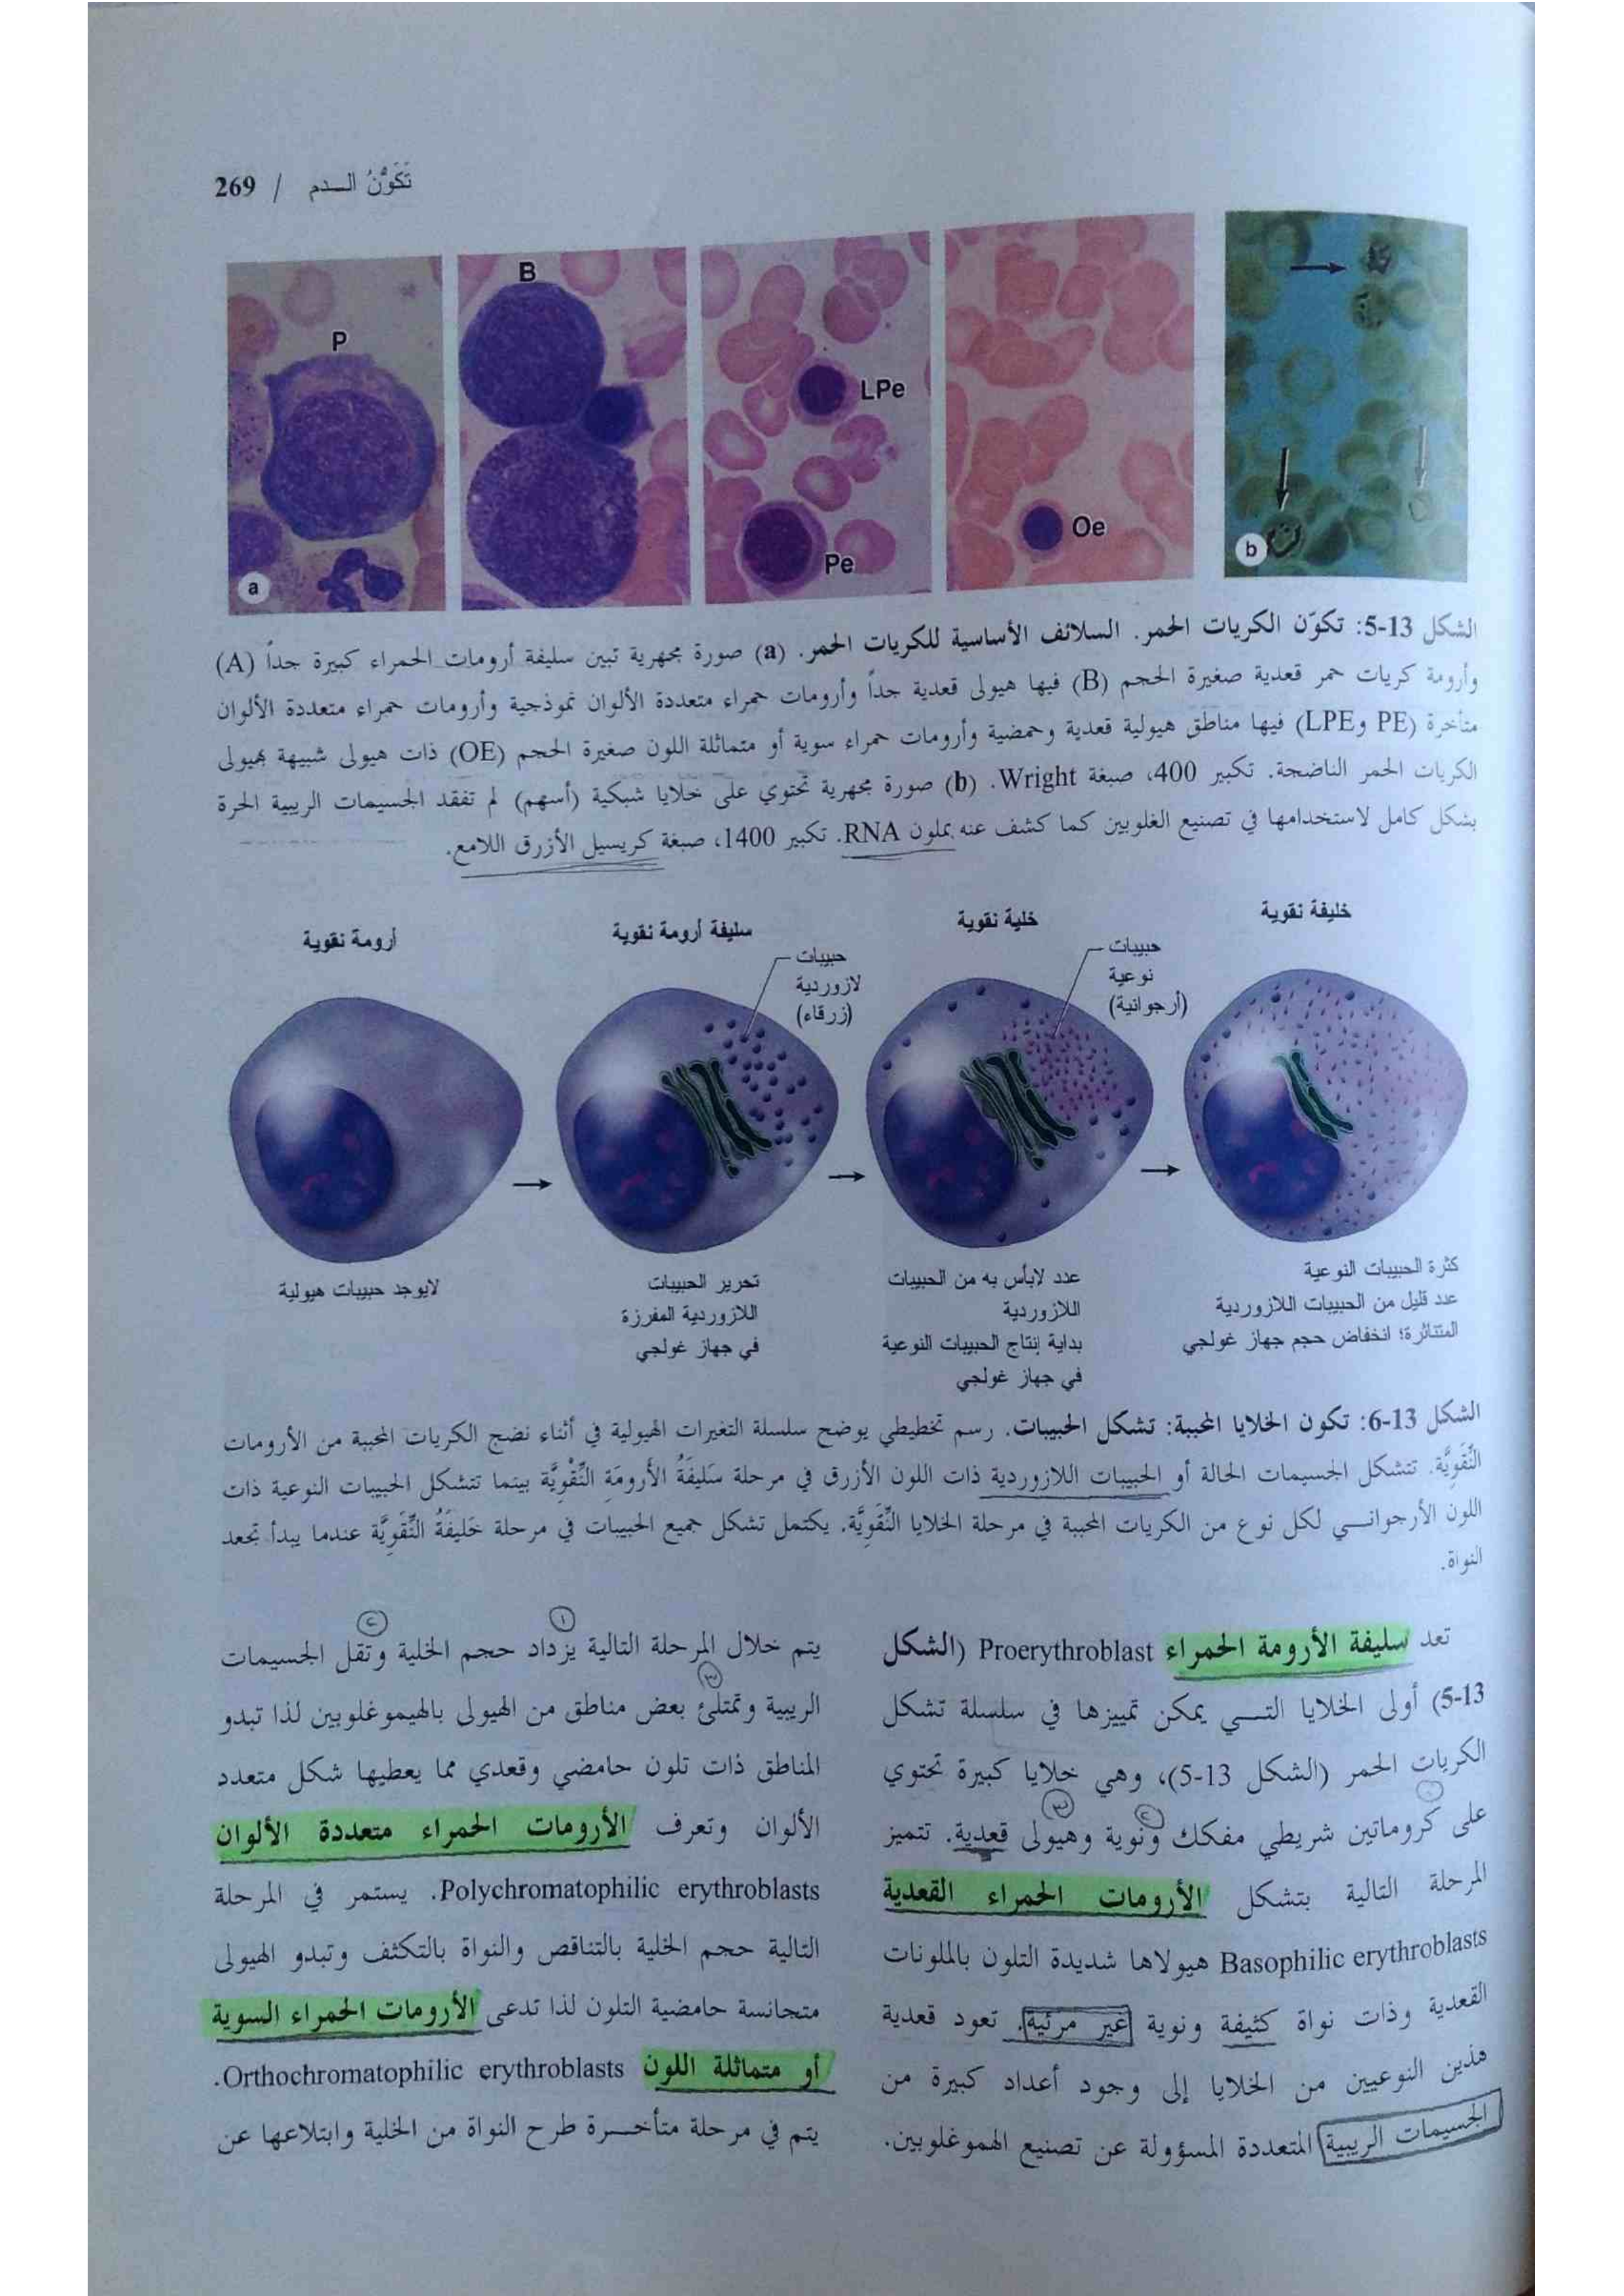 تَكَوُّنُ الـــدم / 269
P
B
LPe
Pe
Oe
a
b
الشكل 13-5: تكوّن الكريات الحمر. السلائف الأساسية للكريات الحمر. (a) صورة مجهرية تبين سليفة أرومات الحمراء كبيرة جداً (A)
وأرومة كريات حمر قعدية صغيرة الحجم (B) فيها هيولى قعدية جداً وأرومات حمراء متعددة الألوان نموذجية وأرومات حمراء متعددة الألوان
متأخرة (PE وLPE) فيها مناطق هيولية قعدية وحمضية وأرومات حمراء سوية أو متماثلة اللون صغيرة الحجم (OE) ذات هيولى شبيهة بهيولى
الكريات الحمر الناضجة. تكبير 400، صبغة Wright. (b) صورة مجهرية تحتوي على خلايا شبكية (أسهم) لم تفقد الجسيمات الريبية الحرة
بشكل كامل لاستخدامها في تصنيع الغلوبين كما كشف عنه بملون RNA. تكبير 1400، صبغة كريسيل الأزرق اللامع.
أرومة نقوية
سليفة أرومة نقوية
خلية نقوية
خليفة نقوية
حبيبات
لازوردية
(زرقاء)
حبيبات
نوعية
(أرجوانية)
لايوجد حبيبات هيولية
تحرير الحبيبات
اللازوردية المفرزة
في جهاز غولجي
عدد لابأس به من الحبيبات
اللازوردية
بداية إنتاج الحبيبات النوعية
في جهاز غولجي
كثرة الحبيبات النوعية
عدد قليل من الحبيبات اللازوردية
المتناثرة؛ انخفاض حجم جهاز غولجي
الشكل 13-6: تكون الخلايا المحببة: تشكل الحبيبات. رسم تخطيطي يوضح سلسلة التغيرات الهيولية في أثناء نضج الكريات المحببة من الأرومات
النِّقَوِيَّة. تتشكل الجسيمات الحالة أو الحبيبات اللازوردية ذات اللون الأزرق في مرحلة سَليفَةُ الأَرومَة النِّقْوِيَّة بينما تتشكل الحبيبات النوعية ذات
اللون الأرجوانـــي لكل نوع من الكريات المحببة في مرحلة الخلايا النِّقَوِيَّة. يكتمل تشكل جميع الحبيبات في مرحلة خَليفَةُ النِّقَوِيَّة عندما يبدأ تجعد
النواة.
تعد سليفة الأرومة الحمراء Proerythroblast (الشكل
13-5) أولى الخلايا التـــي يمكن تمييزها في سلسلة تشكل
الكريات الحمر (الشكل 13-5)، وهي خلايا كبيرة تحتوي
على كروماتين شريطي مفكك ونوية وهيولى قعدية. تتميز
المرحلة التالية بتشكل الأرومات الحمراء القعدية
Basophilic erythroblasts هيولاها شديدة التلون بالملونات
القعدية وذات نواة كثيفة ونوية غير مرئية. تعود قعدية
هذين النوعيين من الخلايا إلى وجود أعداد كبيرة من
الجسيمات الريبية المتعددة المسؤولة عن تصنيع الهموغلوبين.
١
٢
٣
يتم خلال المرحلة التالية يزداد حجم الخلية وتقل الجسيمات
الريبية وتمتلئ بعض مناطق من الهيولى بالهيموغلوبين لذا تبدو
المناطق ذات تلون حامضي وقعدي مما يعطيها شكل متعدد
الألوان وتعرف الأرومات الحمراء متعددة الألوان
Polychromatophilic erythroblasts. يستمر في المرحلة
التالية حجم الخلية بالتناقص والنواة بالتكثف وتبدو الهيولى
متجانسة حامضية التلون لذا تدعى الأرومات الحمراء السوية
أو متماثلة اللون Orthochromatophilic erythroblasts.
يتم في مرحلة متأخـــرة طرح النواة من الخلية وابتلاعها عن